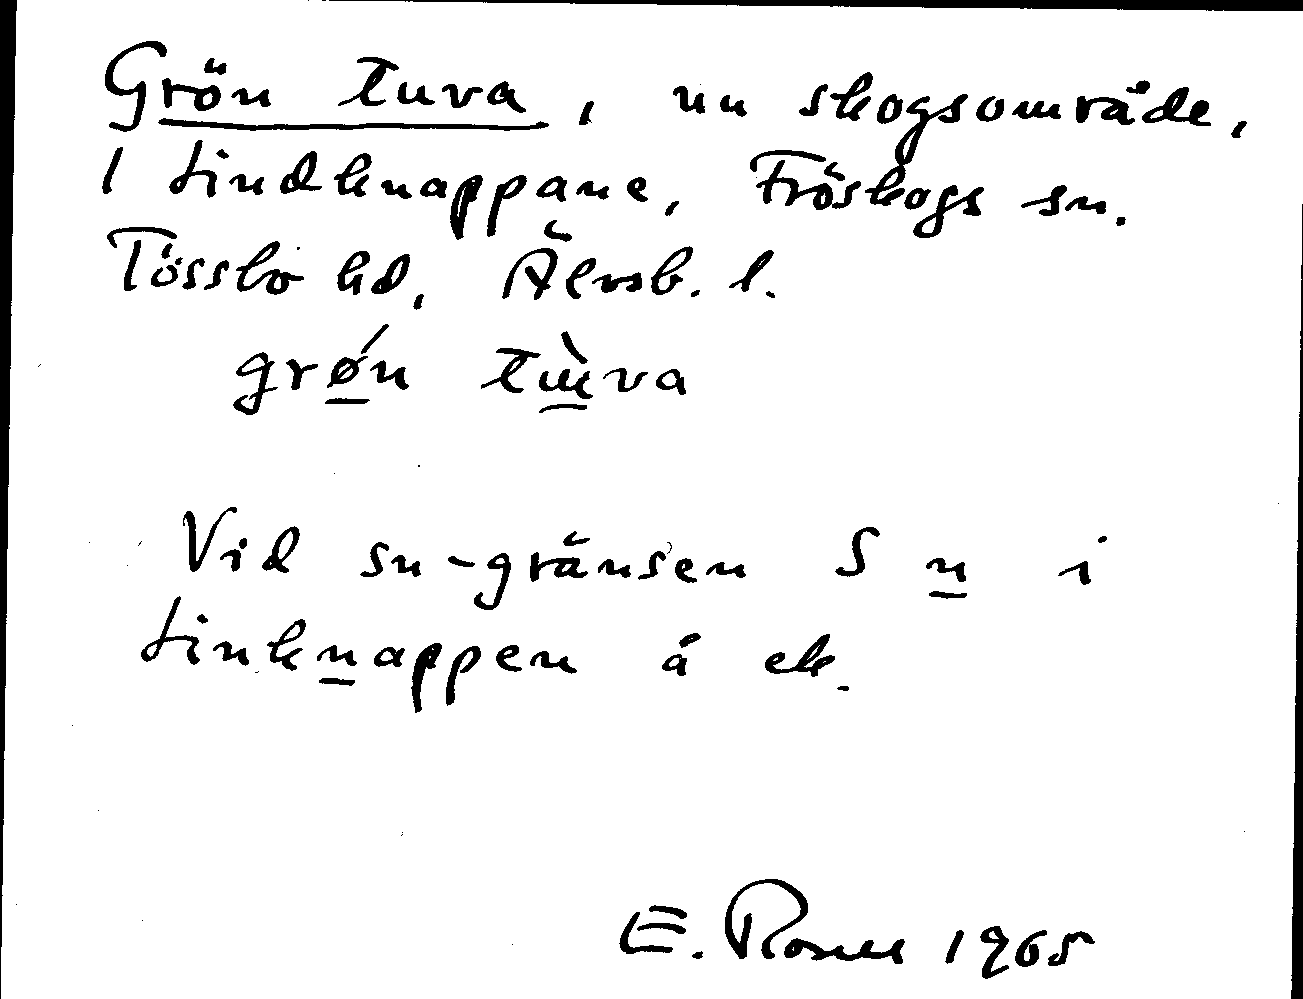 Grön tuva, nu skogsområde,
/ Lindknappane, Fröskogs sn.
Tössbo hd, Älvsb. l.
grǿn tɯ̀va
Vid sn-gränsen S n i
Linknappen å ek.
E. 1965